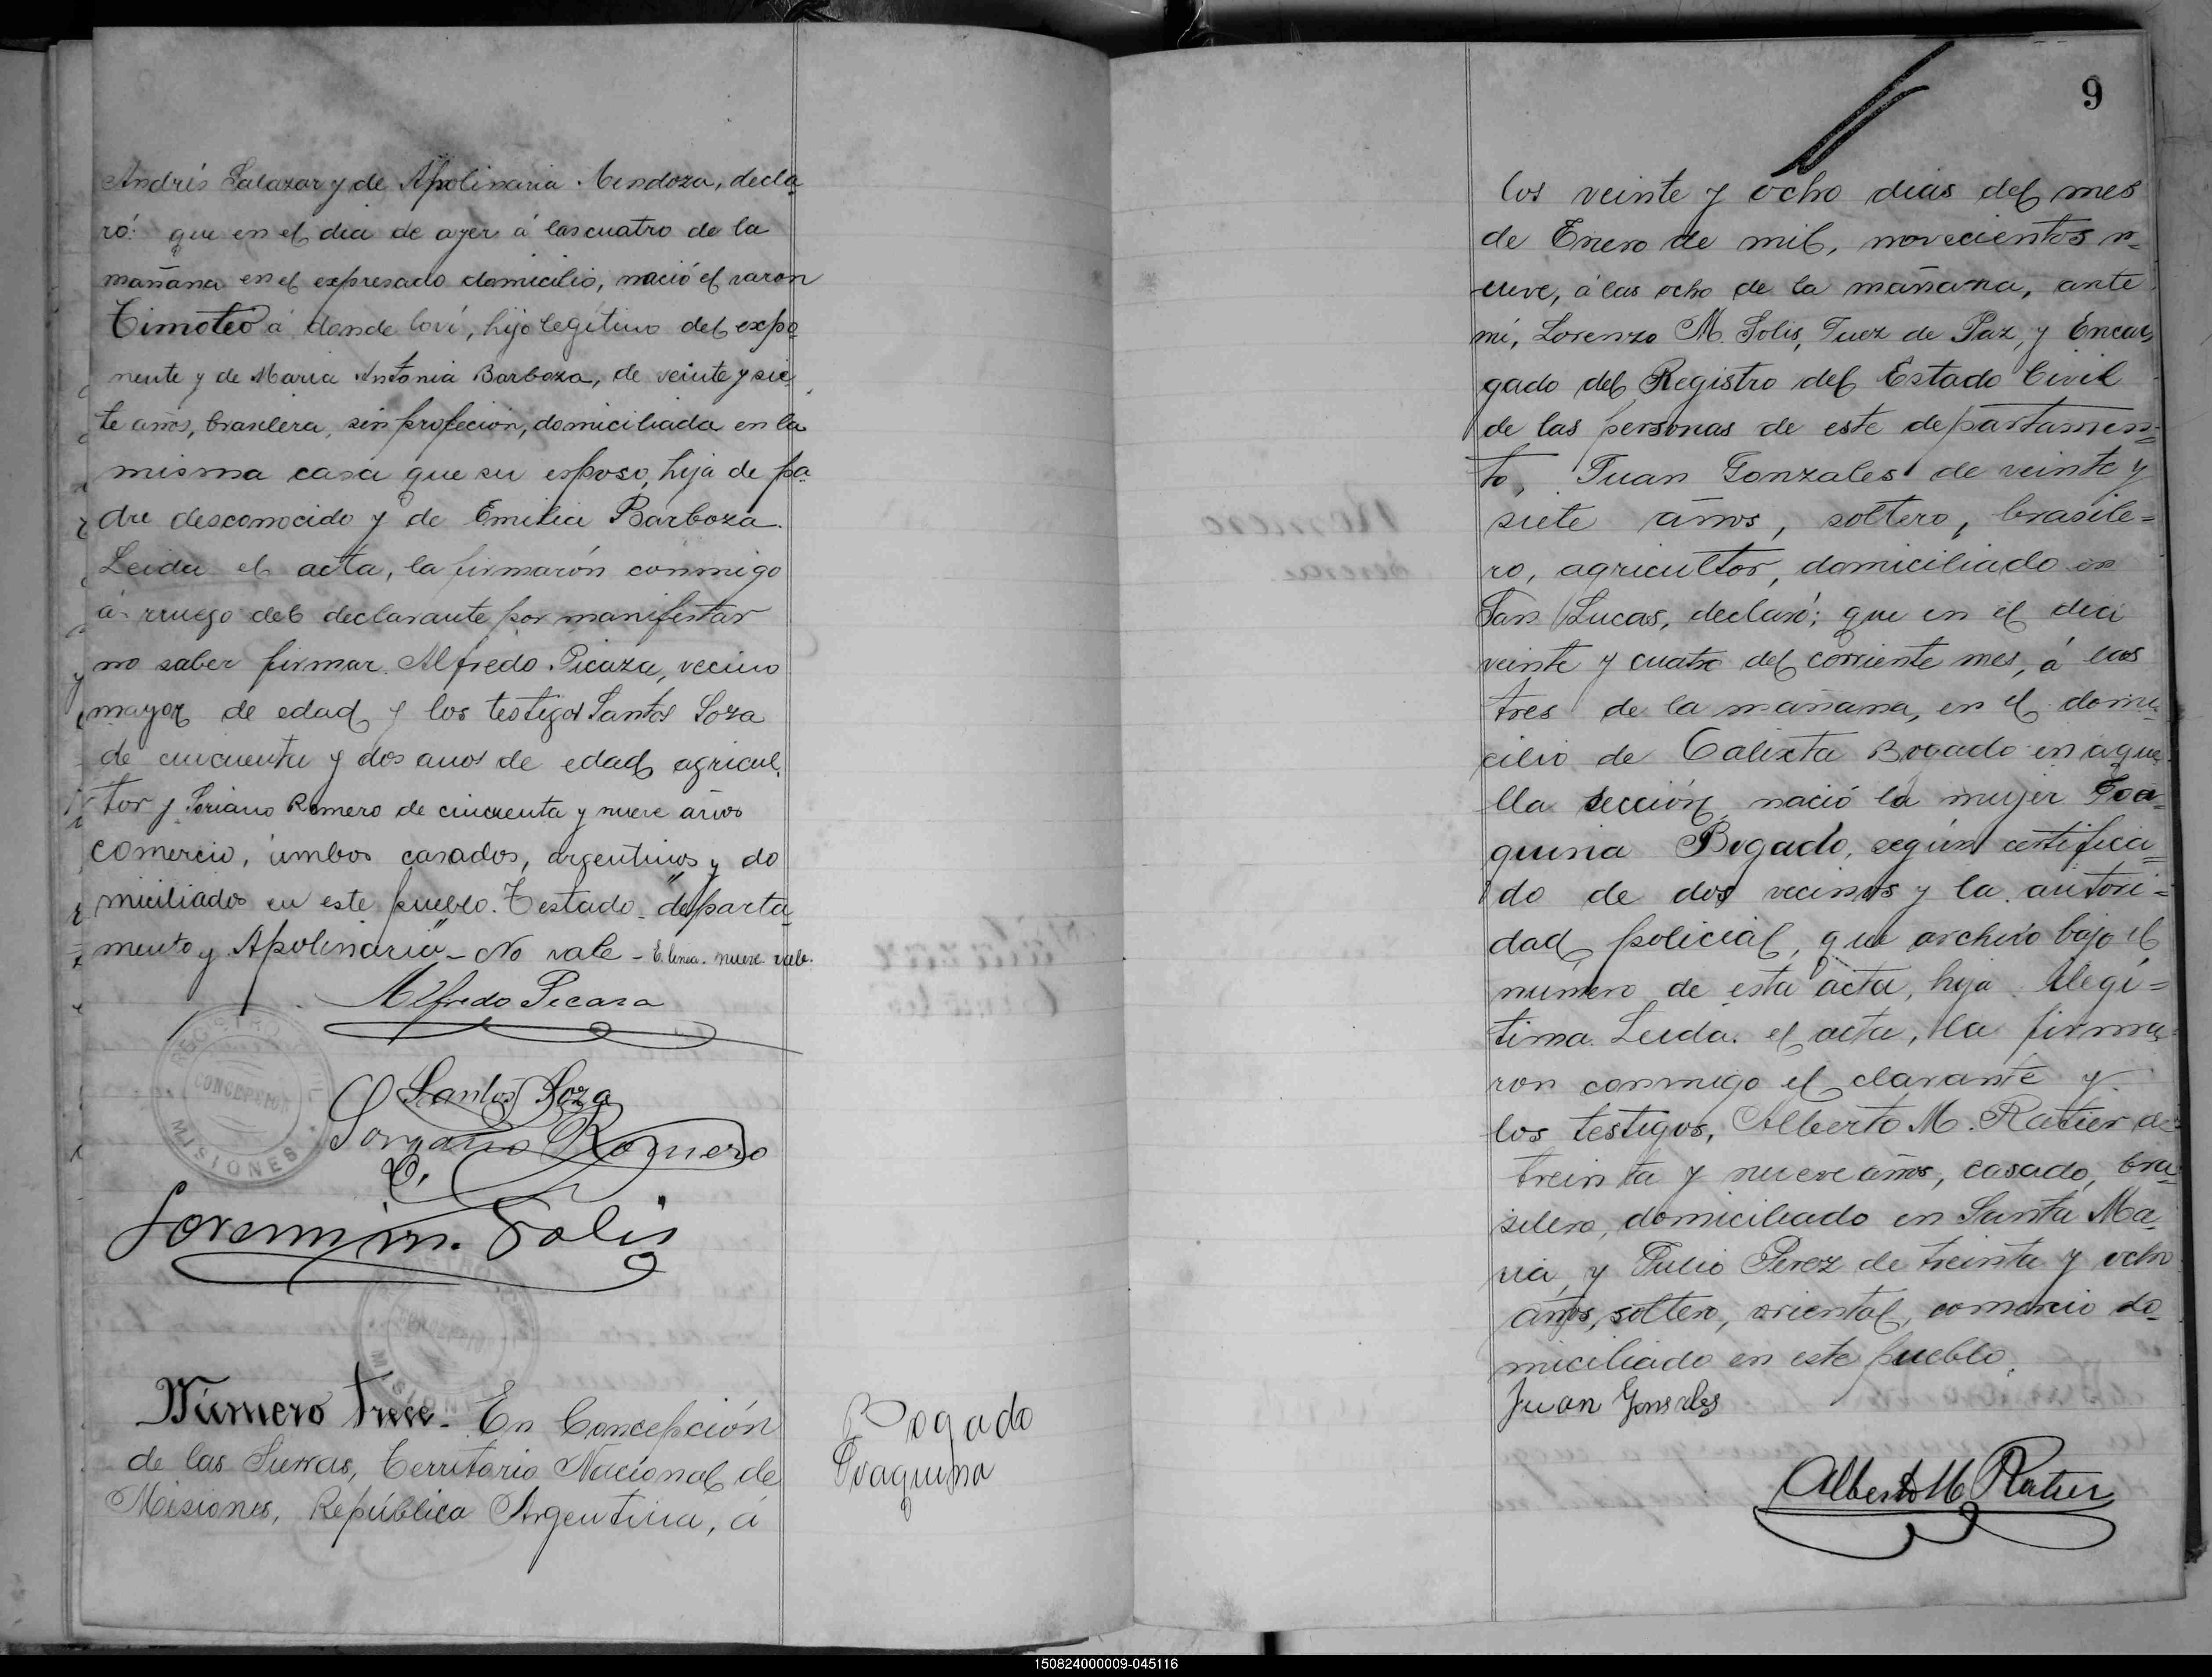 Andrés Salazar y de Apolinaria Mendoza, decla
ró: que en el dia de ayer á las cuatro de la
mañana en el expresado domicilio, nació el varon
Timoteo á donde loví, hijo legítimo del expo
nente y de Maria Antonia Barboza, de veinte y sie
te años, brasilera, sin profecion, domiciliada en la
misma casa que su esposo, hija de pa
dre desconocido y de Emilia Barboza.
Leida el acta, la firmarón conmigo
á rruego del declarante por manifestar
no saber firmar Alfredo Picaza, vecino
mayor de edad y los testigos Santos Soza
de cincuenta y dos anos de edad agricul
tor y Soriano Romero de cincuenta y nueve años
comercio, ámbos casados, argentinos y do
miciliados en este pueblo. Testado "departa
mento y Apolinario" - No vale - E. linea. nueve. vale.
Alfredo Picasa
Santos Soza
Soriano Romero
Lorenzo M. Solis
REGISTRO CIVIL
CONCEPCION
MISIONES
MISIONES
Número trece - En Concepción
de las Sierras, Territorio Nacional de
Misiones, República Argentina, á
Bogado
Joaquina
9
los veinte y ocho dias del mes
de Enero de mil, novecientos n=
ueve, á las ocho de la mañana, ante
mí, Lorenzo M. Solis, Juez de Paz, y Encar
gado del Registro del Estado Civil
de las personas de este departamen=
to, Juan Gonzales de veinte y
siete años, soltero, brasile=
ro, agricultor, domiciliado en
San Lucas, declaró; que en el dia
veinte y cuatro del corriente mes, á las
tres de la mañana, en el domi
cilio de Calixta Bogado en aque
lla sección nació la mujer Joa=
quina Bogado, según certifica=
do de dos vecinos y la autori=
dad policial, que archivo bajo el
número de esta acta, hija ilegi=
tima. Leida el acta, la firma=
ron conmigo el clarante y
los testigos, Alberto M. Ratier de
treinta y nueve años, casado, bra
silero, domiciliado en Santa Ma
ria, y Julio Perez de treinta y ocho
años, soltero, oriental, comercio do
miciliado en este pueblo.
Juan Gonsales
Alberto M Ratier
150824000009-045116